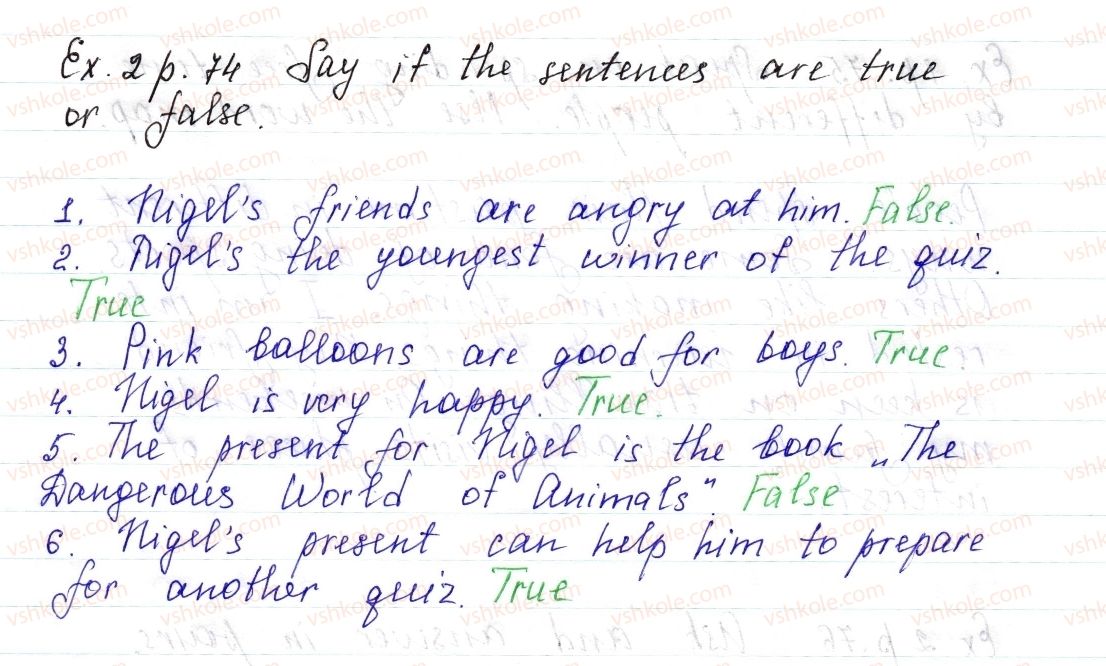 Ex. 2 p. 74 Say if the sentences are true
or false.
1. Nigel's friends are angry at him. False.
2. Nigel's the youngest winner of the quiz.
True
3. Pink balloons are good for boys. True.
4. Nigel is very happy. True.
5. The present for Nigel is the book „The
Dangerous World of Animals". False
6. Nigel's present can help him to prepare
for another quiz. True